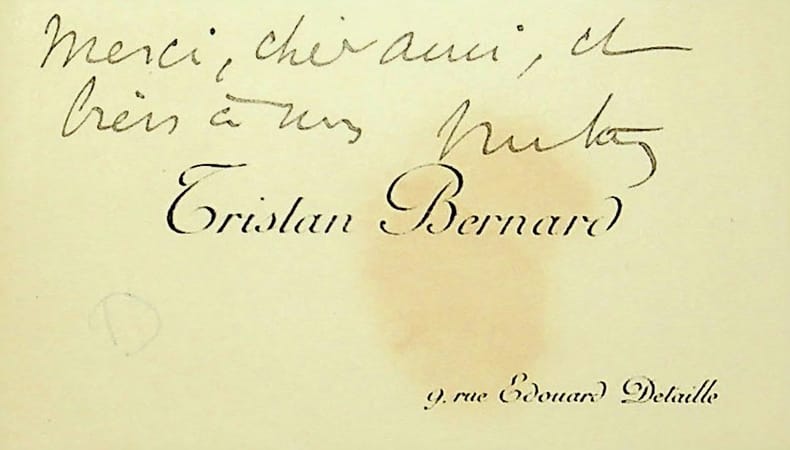 Merci, cher ami, et
bien à vous
Tristan Bernard
D
9. rue Edouard Detaille